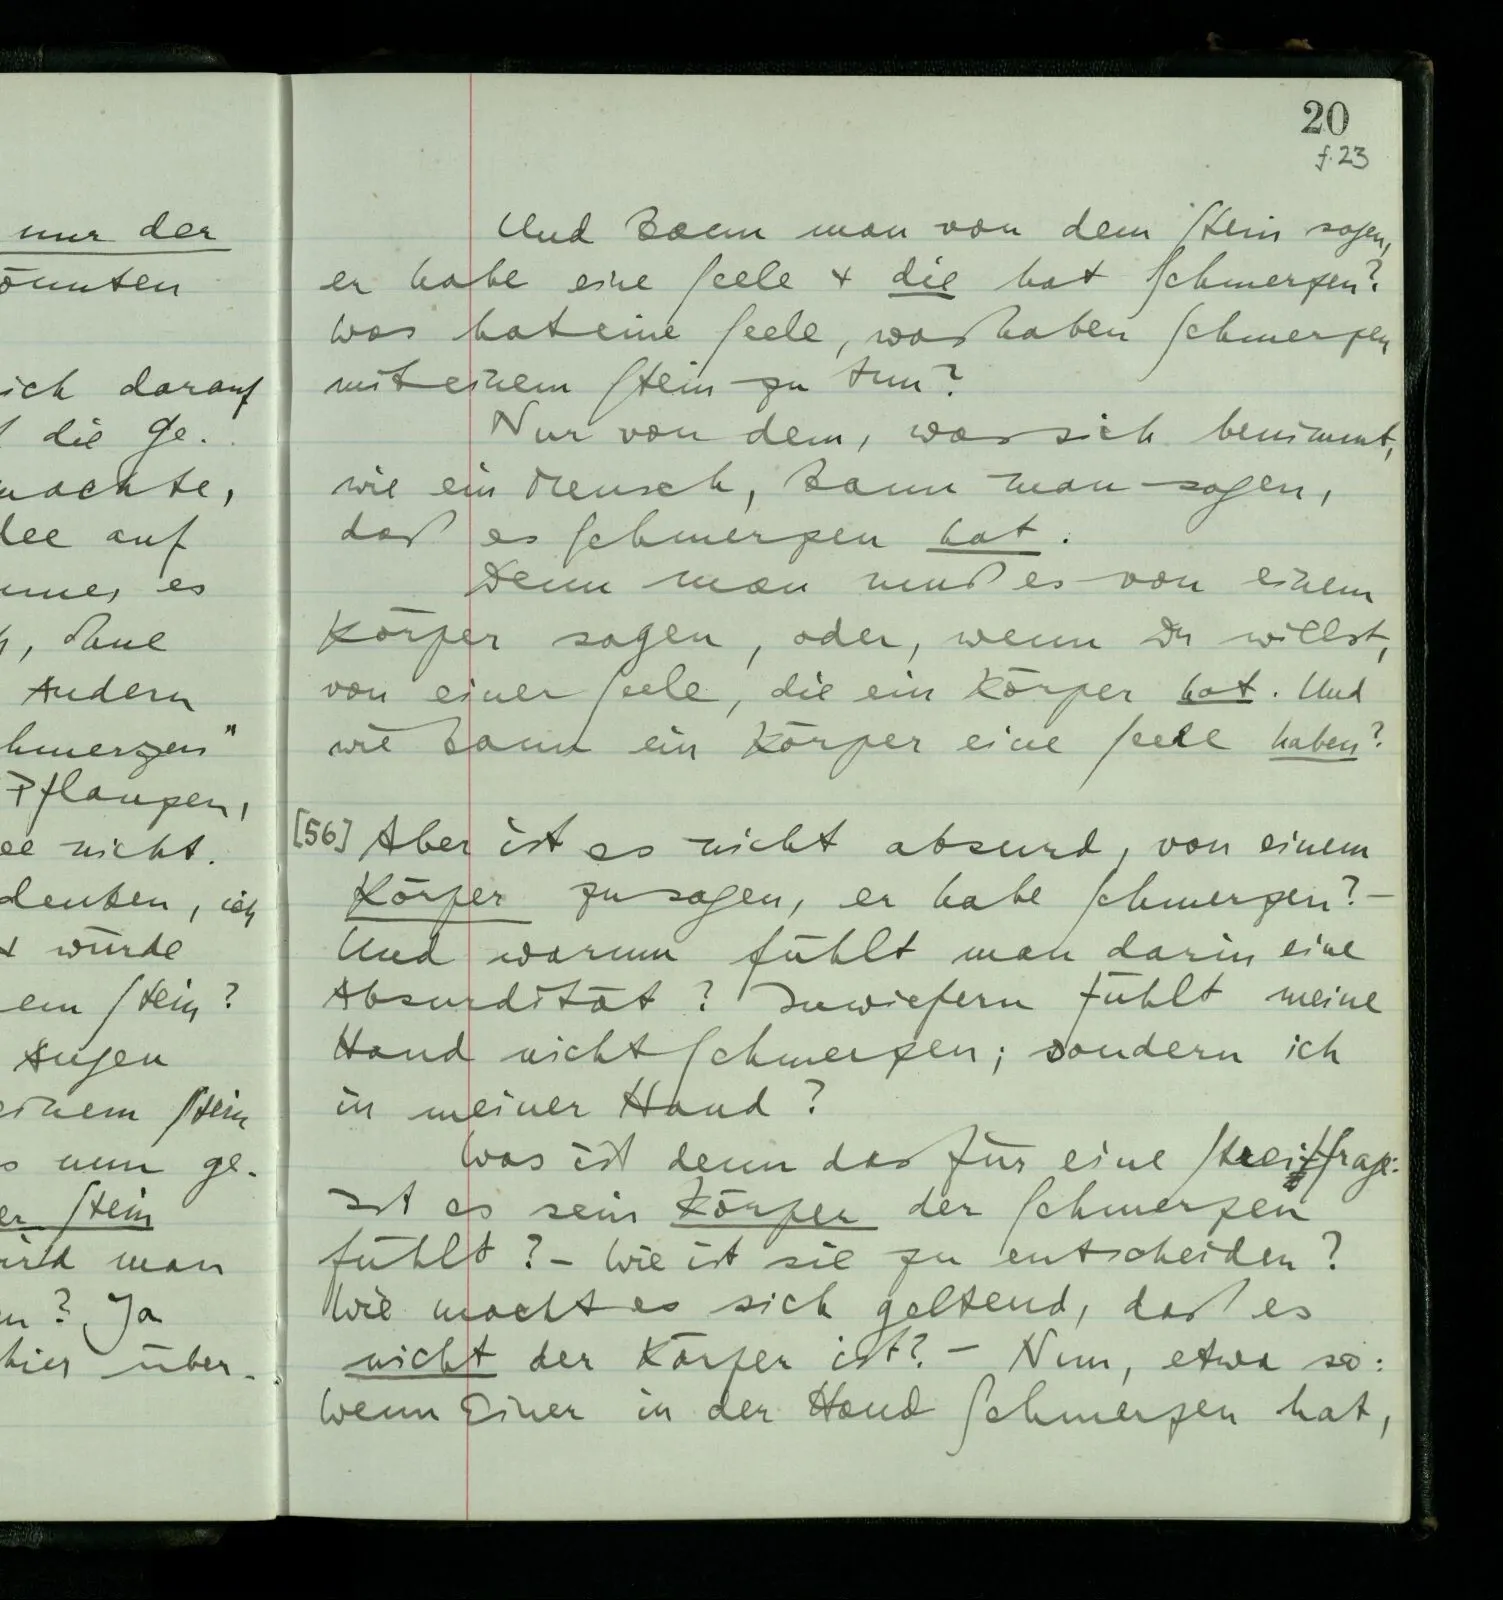 nur der
önnten
ich darauf
die Ge-
machte,
dee auf
es
, ohne
Andern
hmerzen"
Pflanzen,
ee nicht.
denken, ich
+ würde
em Stein?
Augen
einem Stein
s nun ge-
er Stein
ird man
n? Ja
hier über-
20
f. 23
Und kann man von dem Stein sagen,
er habe eine Seele + die hat Schmerzen?
Was hat eine Seele, was haben Schmerzen
mit einem Stein zu tun?
Nur von dem, was sich benimmt,
wie ein Mensch, kann man sagen,
daß es Schmerzen hat.
Denn man muß es von einem
Körper sagen, oder, wenn Du willst,
von einer Seele, die ein Körper hat. Und
wie kann ein Körper eine Seele haben?
[56] Aber ist es nicht absurd, von einem
Körper zu sagen, er habe Schmerzen? –
Und warum fühlt man darin eine
Absurdität? Inwiefern fühlt meine
Hand nicht Schmerzen; sondern ich
in meiner Hand?
Was ist denn das für eine Streitfrage:
Ist es sein Körper der Schmerzen
fühlt? – Wie ist sie zu entscheiden?
Wie macht es sich geltend, daß es
nicht der Körper ist? – Nun, etwa so:
Wenn Einer in der Hand Schmerzen hat,